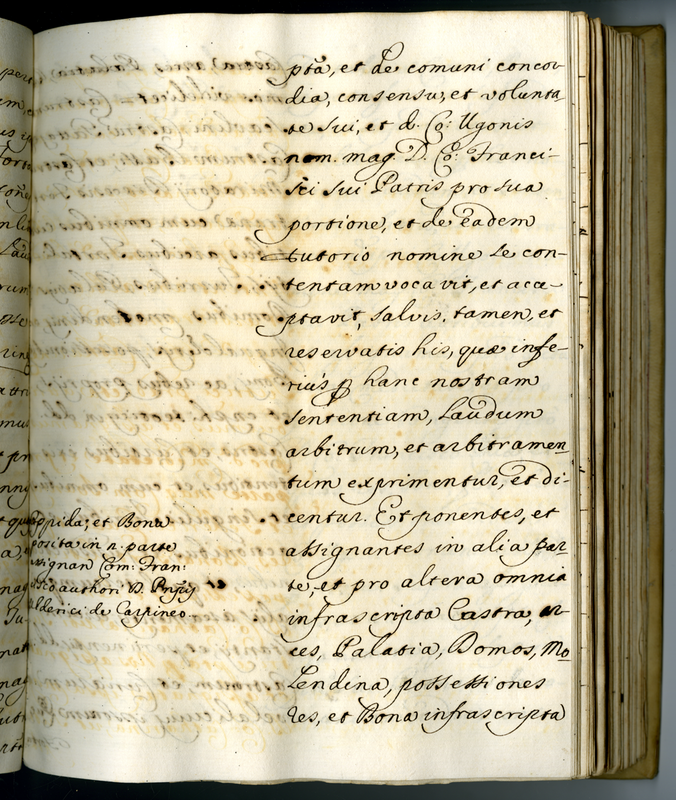 pta, et de comuni concor
dia, consensu, et volunta
te sui, et d. Co: Ugonis
nom. mag. D. Co: Franci-
sci sui Patris pro sua
portione, et de eadem
tutorio nomine se con-
tentam vocavit, et acce
ptavit, salvis tamen, et
reservatis his, quæ infe-
rius p hanc nostram
sententiam, Laudum
arbitrum, et arbitramen
tum exprimentur, et di-
centur. Et ponentes, et
assignantes in alia par
te, et pro altera omnia
infrascripta Castra, ar
ces, Palatia, Domos, Mo
lendina, possessiones
res, et Bona infrascripta
Oppida, et Bona
posita in 2. parte
assignan Com: Fran:
cisco authori D. Pnpis
Alderici de Carpineo.